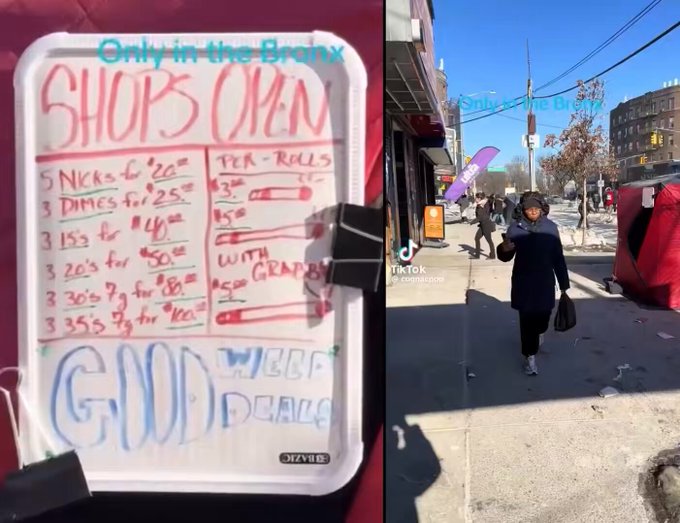 Only in the Bronx
SHOPS OPEN
5 NICKS for $20.00
3 DIMES for $25.00
3 15's for $40.00
3 20's for $50.00
3 30's 7g for $80.00
3 35's 7g for $100.00
PER-ROLLS
$3.00
$5.00
WITH
GRABBA
$5.00
GOOD WEED
DEALS
BAZIC
Only in the Bronx
TikTok